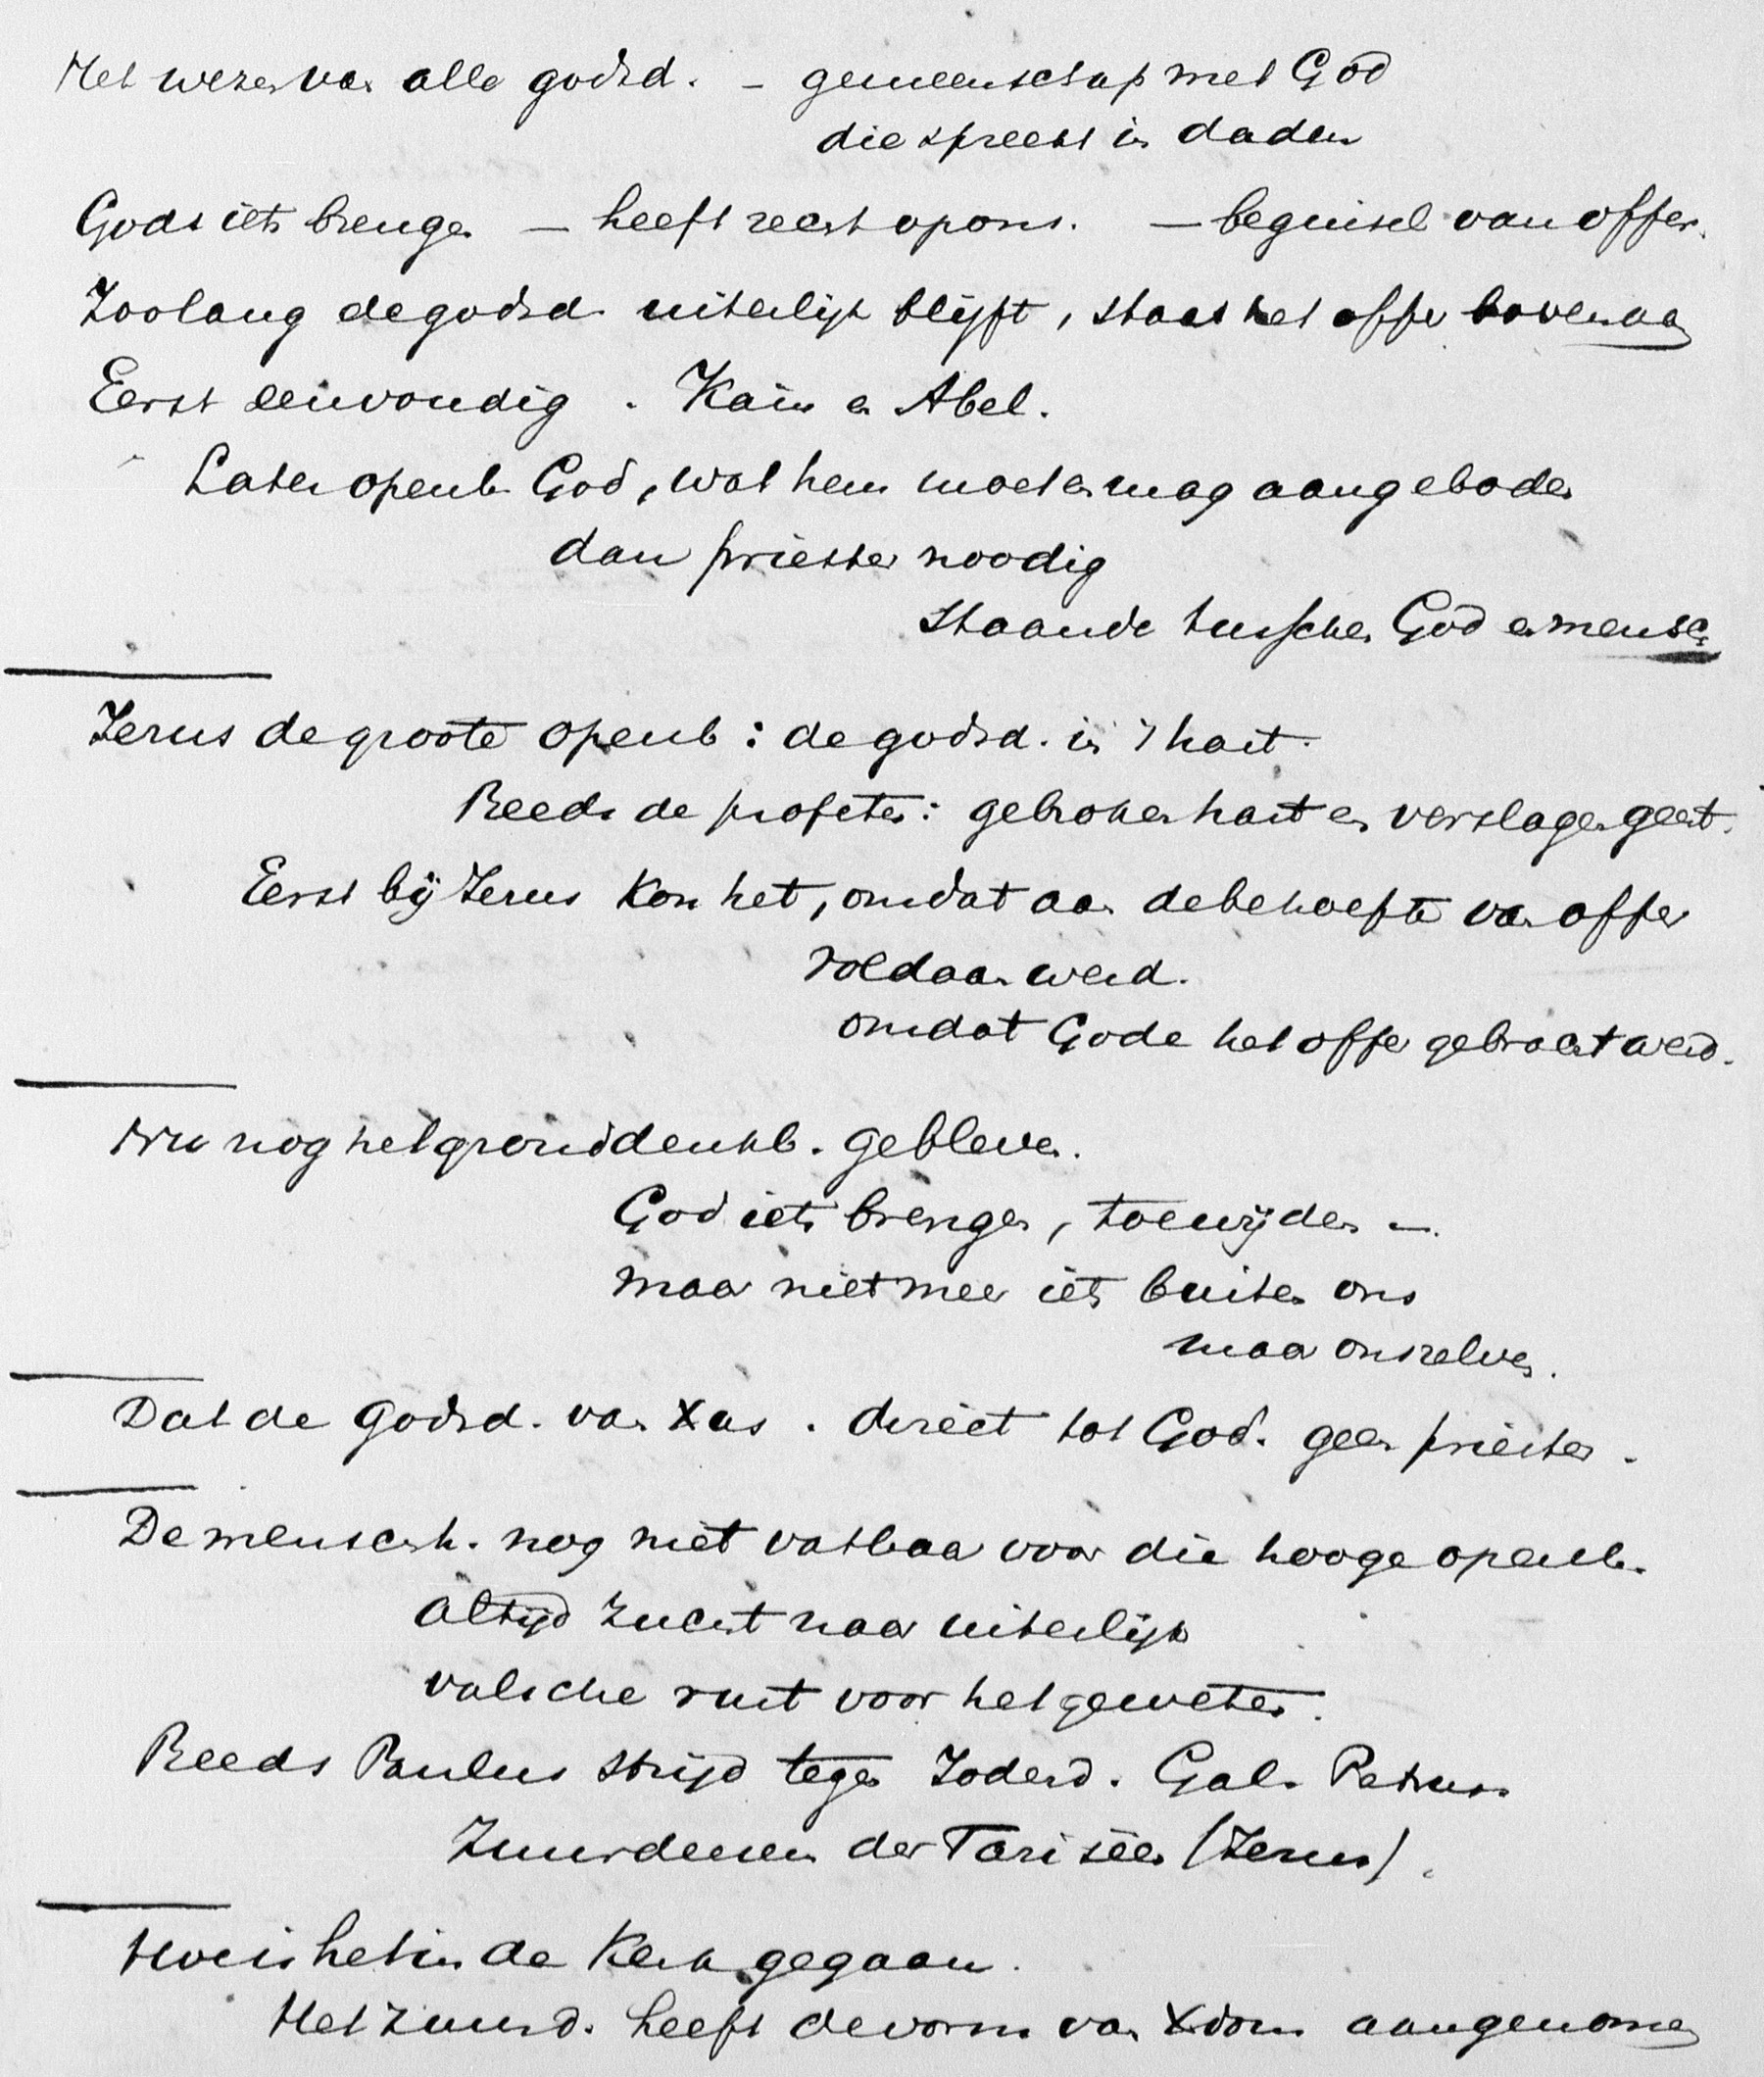 Het wezen van alle godsd. – gemeenschap met God
die spreekt in daden
Gods iets brengen – heeft recht op ons. – beginsel van offer.
Zoolang de godsd. uiterlijk blijft, staat het offer bovenaan
Eerst eenvoudig. Kaïn en Abel.
Later openb. God, wat hem moet en mag aangeboden
dan priester noodig
staande tusschen God en mensch
Jezus de groote openb: de godsd. in 't hart.
Reeds de profeten: gebroken hart en verslagen geest.
Eerst bij Jezus kon het, omdat aan de behoefte van offer
voldaan werd.
omdat Gode het offer gebracht werd.
Nu nog het gronddenkb. gebleven.
God iets brengen, toewijden –.
maar niet meer iets buiten ons
maar onszelven.
Dat de godsd. van Xus. direct tot God. geen priester.
De mensch. nog niet vatbaar voor die hooge openb.
altijd zucht naar uiterlijk
valsche rust voor het geweten.
Reeds Paulus strijd tegen Joderd. Gal. Petrus.
Zuurdeesem der Fariseën (Jezus).
Hoe is het in de Kerk gegaan.
Het zuurd. heeft de vorm van Xdom aangenomen